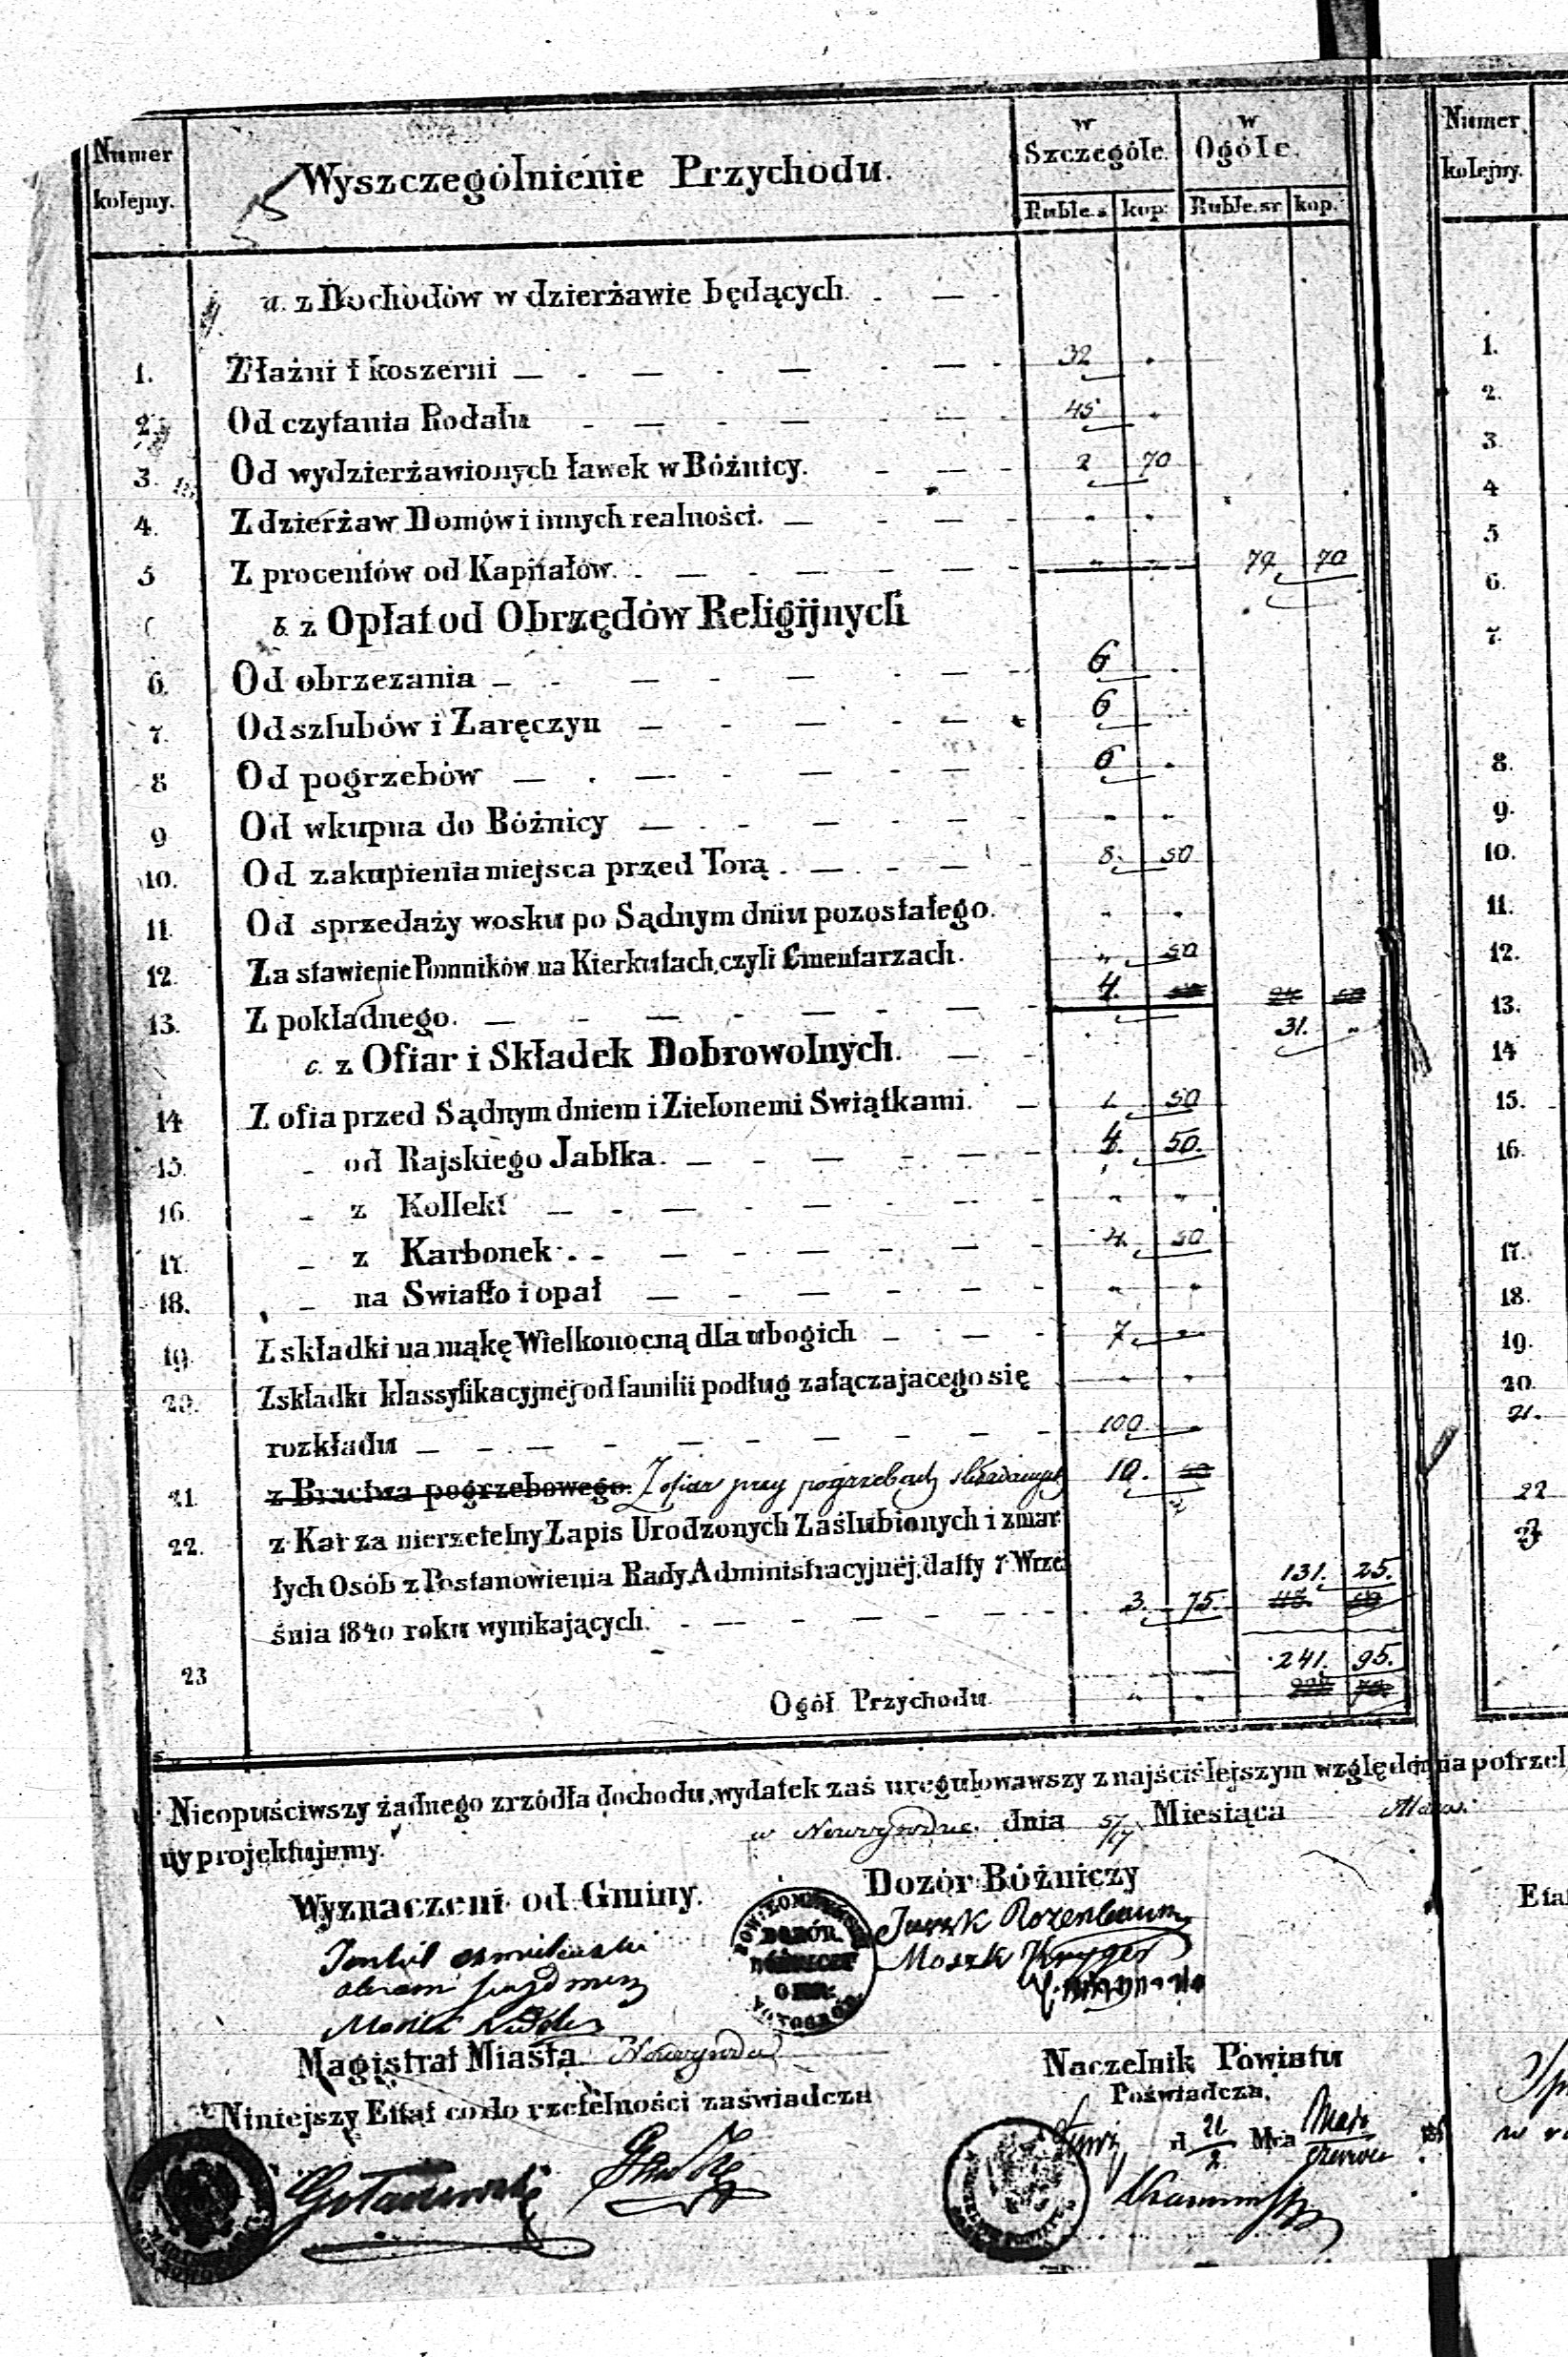 Numer kolejny.
Wyszczególnienie Przychodu.
w Szczególe.
w Ogóle.
Ruble.s kop: Ruble.sr kop.
Numer kolejny.
a. z Dochodów w dzierżawie będących. . — .
1. Z łaźni i koszerni — . — . — . — . 32 "
2. Od czytania Rodału . — . — . — . 45 "
3. Od wydzierżawionych ławek w Bóźnicy. . — . 2 70
4. Z dzierżaw Domów i innych realności. — . — . " "
5 Z procentów od Kapitałów. . — . — . — . " " 79. 70
b. z Opłat od Obrzędów Religijnych
6. Od obrzezania — . — . — . — . 6 .
7. Od szlubów i Zaręczyn — . — . — 6
8 Od pogrzebów — . — . — . — . 6 .
9 Od wkupna do Bóźnicy — . . — . — . " "
10. Od zakupienia miejsca przed Torą . — . . — . 8. 50
11. Od sprzedaży wosku po Sądnym dniu pozostałego. " "
12. Za stawienie Pomników na Kierkutach, czyli Cmentarzach. " 50
13. Z pokładnego. — . — . — . — 4.
31. "
c. z Ofiar i Składek Dobrowolnych. — .
14 Z ofia przed Sądnym dniem i Zielonemi Swiątkami. — 1. 50
15. - od Rajskiego Jabłka. — . — . — . 4. 50.
16. - z Kollekt — . — . — . — . " "
17. - z Karbonek . . — . — . — . 4. 50
18. - na Swiatło i opał — . — . — . " "
19. Z składki na mąkę Wielkonocną dla ubogich — . — . 7 "
20. Z składki klassyfikacyjnéj od familii podług załączajacego się " "
rozkładu — . — . — . — . — . 100. "
21. z Bractwa pogrzebowego. Z ofiar przy pogrzebach składanych 10.
22. z Kar za nierzetelny Zapis Urodzonych Zaślubionych i zmar
łych Osób z Postanowienia Rady Administracyjnéj, datty 7 Wrze
131. 25.
śnia 1840 roku wynikających. . — . — . — . 3. 75.
23
241. 95.
Ogół Przychodu " .
1.
2.
3.
4
5
6.
7.
8.
9.
10.
11.
12.
13.
14
15.
16.
17.
18.
19.
20.
21.
22
23
Nieopuściwszy żadnego zrzódła dochodu, wydatek zaś uregulowawszy z najściślejszym względem na potrzeb
ny projektujemy.
w Nowogrodzie. dnia 5/17 Miesiąca
Wyznaczeni od Gminy.
Dozór Bóźniczy
DOZÓR
BÓŻNICZY
OKR:
Rozenbaum
Moszk Kryger
Magistrat Miasta Nowogrodu
Niniejszy Ettat co do rzetelności zaświadcza
Naczelnik Powiatu
Poświadcza.
d Mca
Gołaszewski
Eta